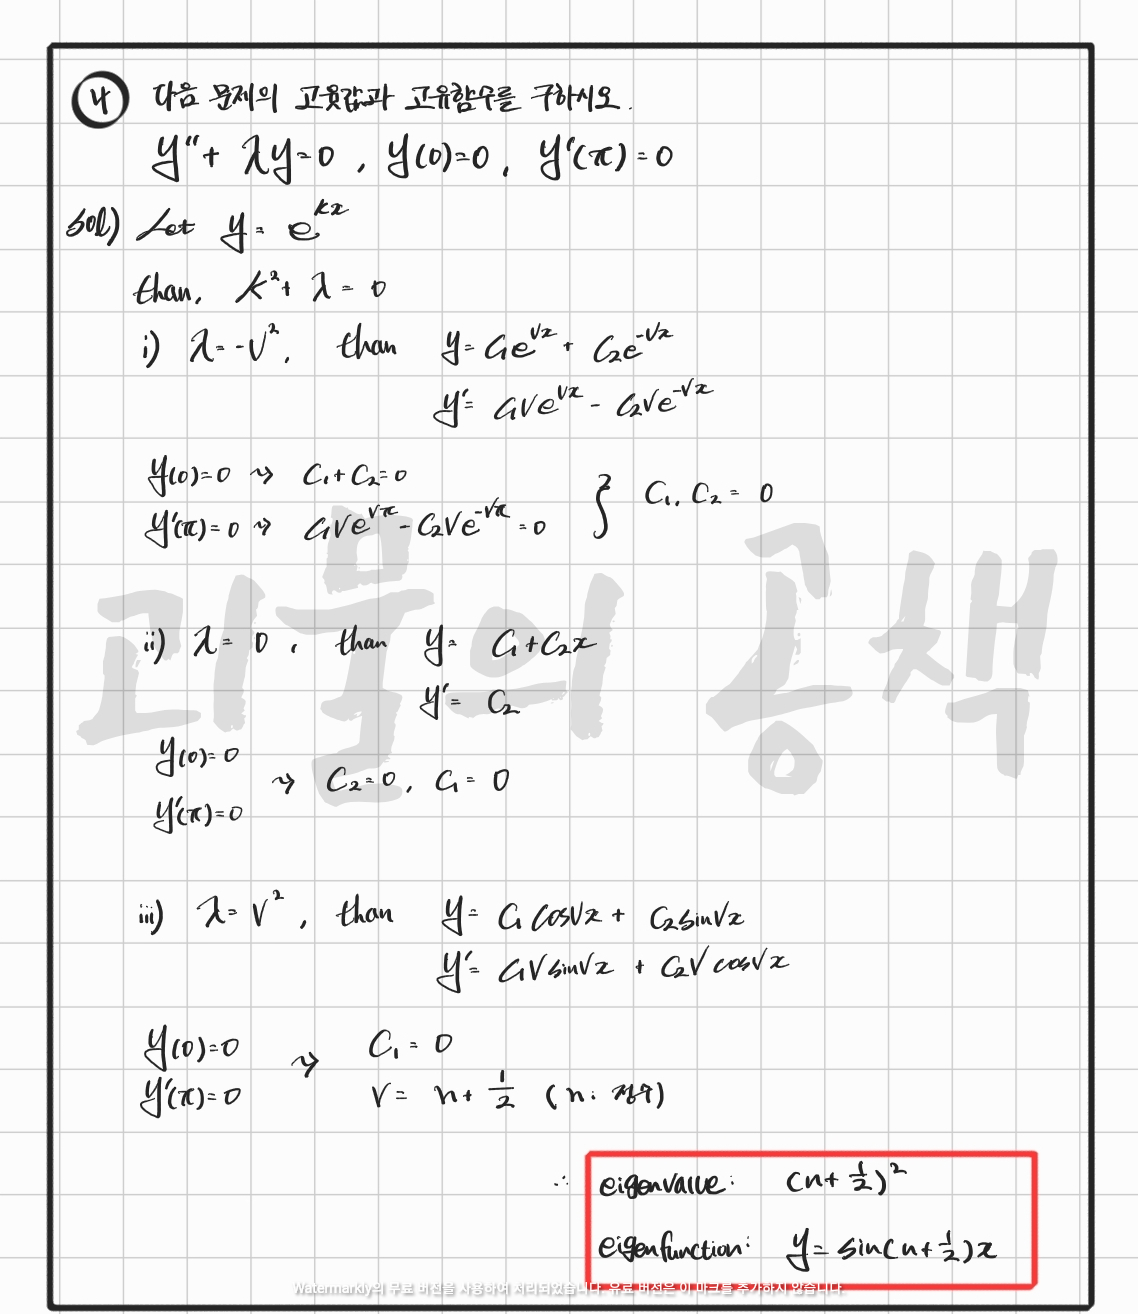 ④ 다음 문제의 고윳값과 고유함수를 구하시오.
y'' + λy = 0 , y(0) = 0 , y'(π) = 0
sol) Let y = e^{kx}
than, k² + λ = 0
i) λ = -ν², than y = C₁e^{νx} + C₂e^{-νx}
y' = C₁νe^{νx} - C₂νe^{-νx}
y(0) = 0 ⇝ C₁ + C₂ = 0
y'(π) = 0 ⇝ C₁νe^{νπ} - C₂νe^{-νπ} = 0 } C₁, C₂ = 0
괴물의 공책
ii) λ = 0 , than y = C₁ + C₂x
y' = C₂
y(0) = 0
y'(π) = 0 ⇝ C₂ = 0, C₁ = 0
iii) λ = ν² , than y = C₁ cosνx + C₂ sinνx
y' = C₁ν sinνx + C₂ν cosνx
y(0) = 0 ⇝ C₁ = 0
y'(π) = 0 ν = n + 1/2 (n: 정수)
∴ eigenvalue: (n + 1/2)²
eigenfunction: y = sin(n + 1/2)x
Watermarkly의 무료 버전을 사용하여 처리되었습니다. 유료 버전은 이 마크를 추가하지 않습니다.